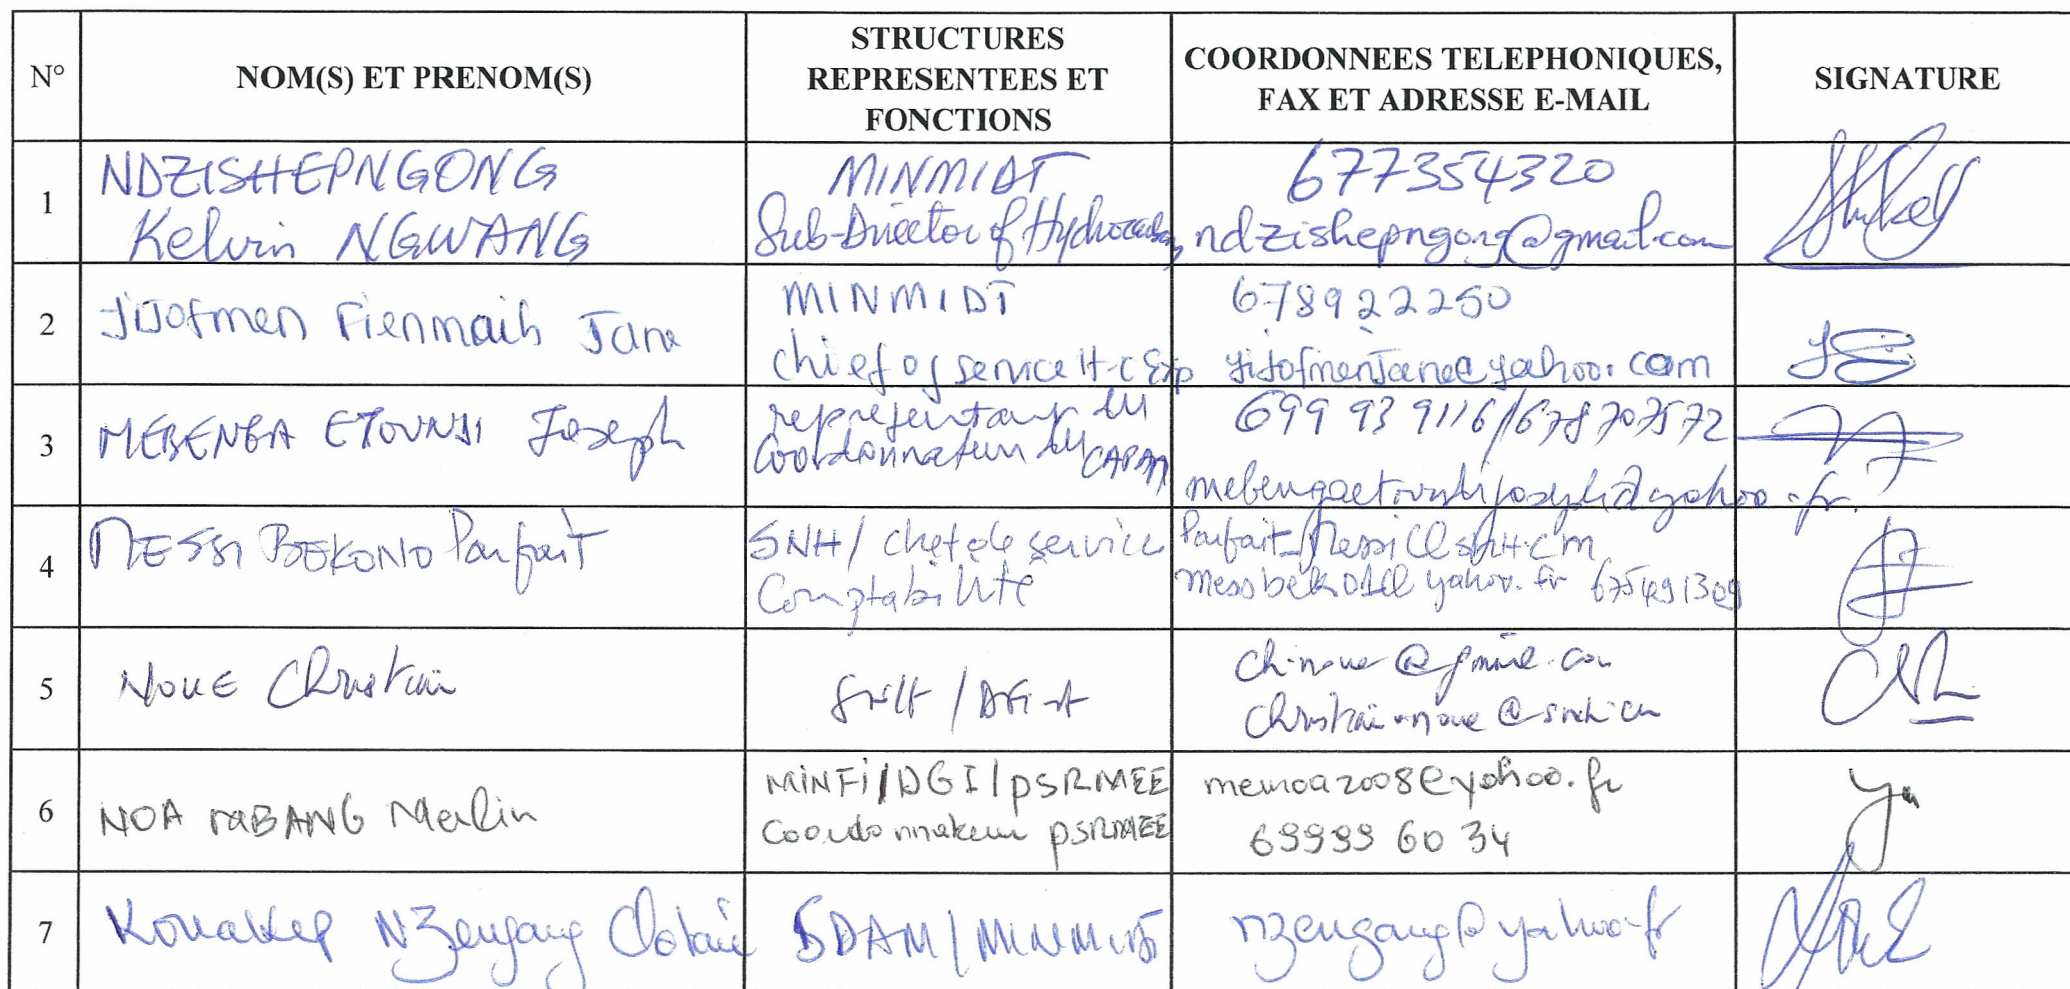 N°
NOM(S) ET PRENOM(S)
STRUCTURES
REPRESENTEES ET
FONCTIONS
COORDONNEES TELEPHONIQUES,
FAX ET ADRESSE E-MAIL
SIGNATURE
1
NDZISHEPNGONG
Kelvin NGWANG
MINMIDT
Sub-Director of
677354320
ndzishepngong@gmail.com
2
Jijofmen Fienmaih Jane
MINMIDT
chief of service H-C Exp
678922250
jijofmenJane@yahoo.com
3
MEBENGA ETOUNDI Joseph
representant du
Coordonnateur du CAPAM
699 93 9116/678707572
mebengaetoundijoseph@yahoo.fr
4
MESSI BEKONO Parfait
SNH/ chef de service
Comptabilité
Parfait_Messi@snh.cm
675491309
5
NOUE Christian
SNH/
6
NOA Merlin
MINFI/DGI/PSRMEE
Coordonnateur PSRMEE
memoa2008@yahoo.fr
69999 60 34
7
Kouakep Nzengang
SDAM/MINMIDT
nzengang@yahoo.fr